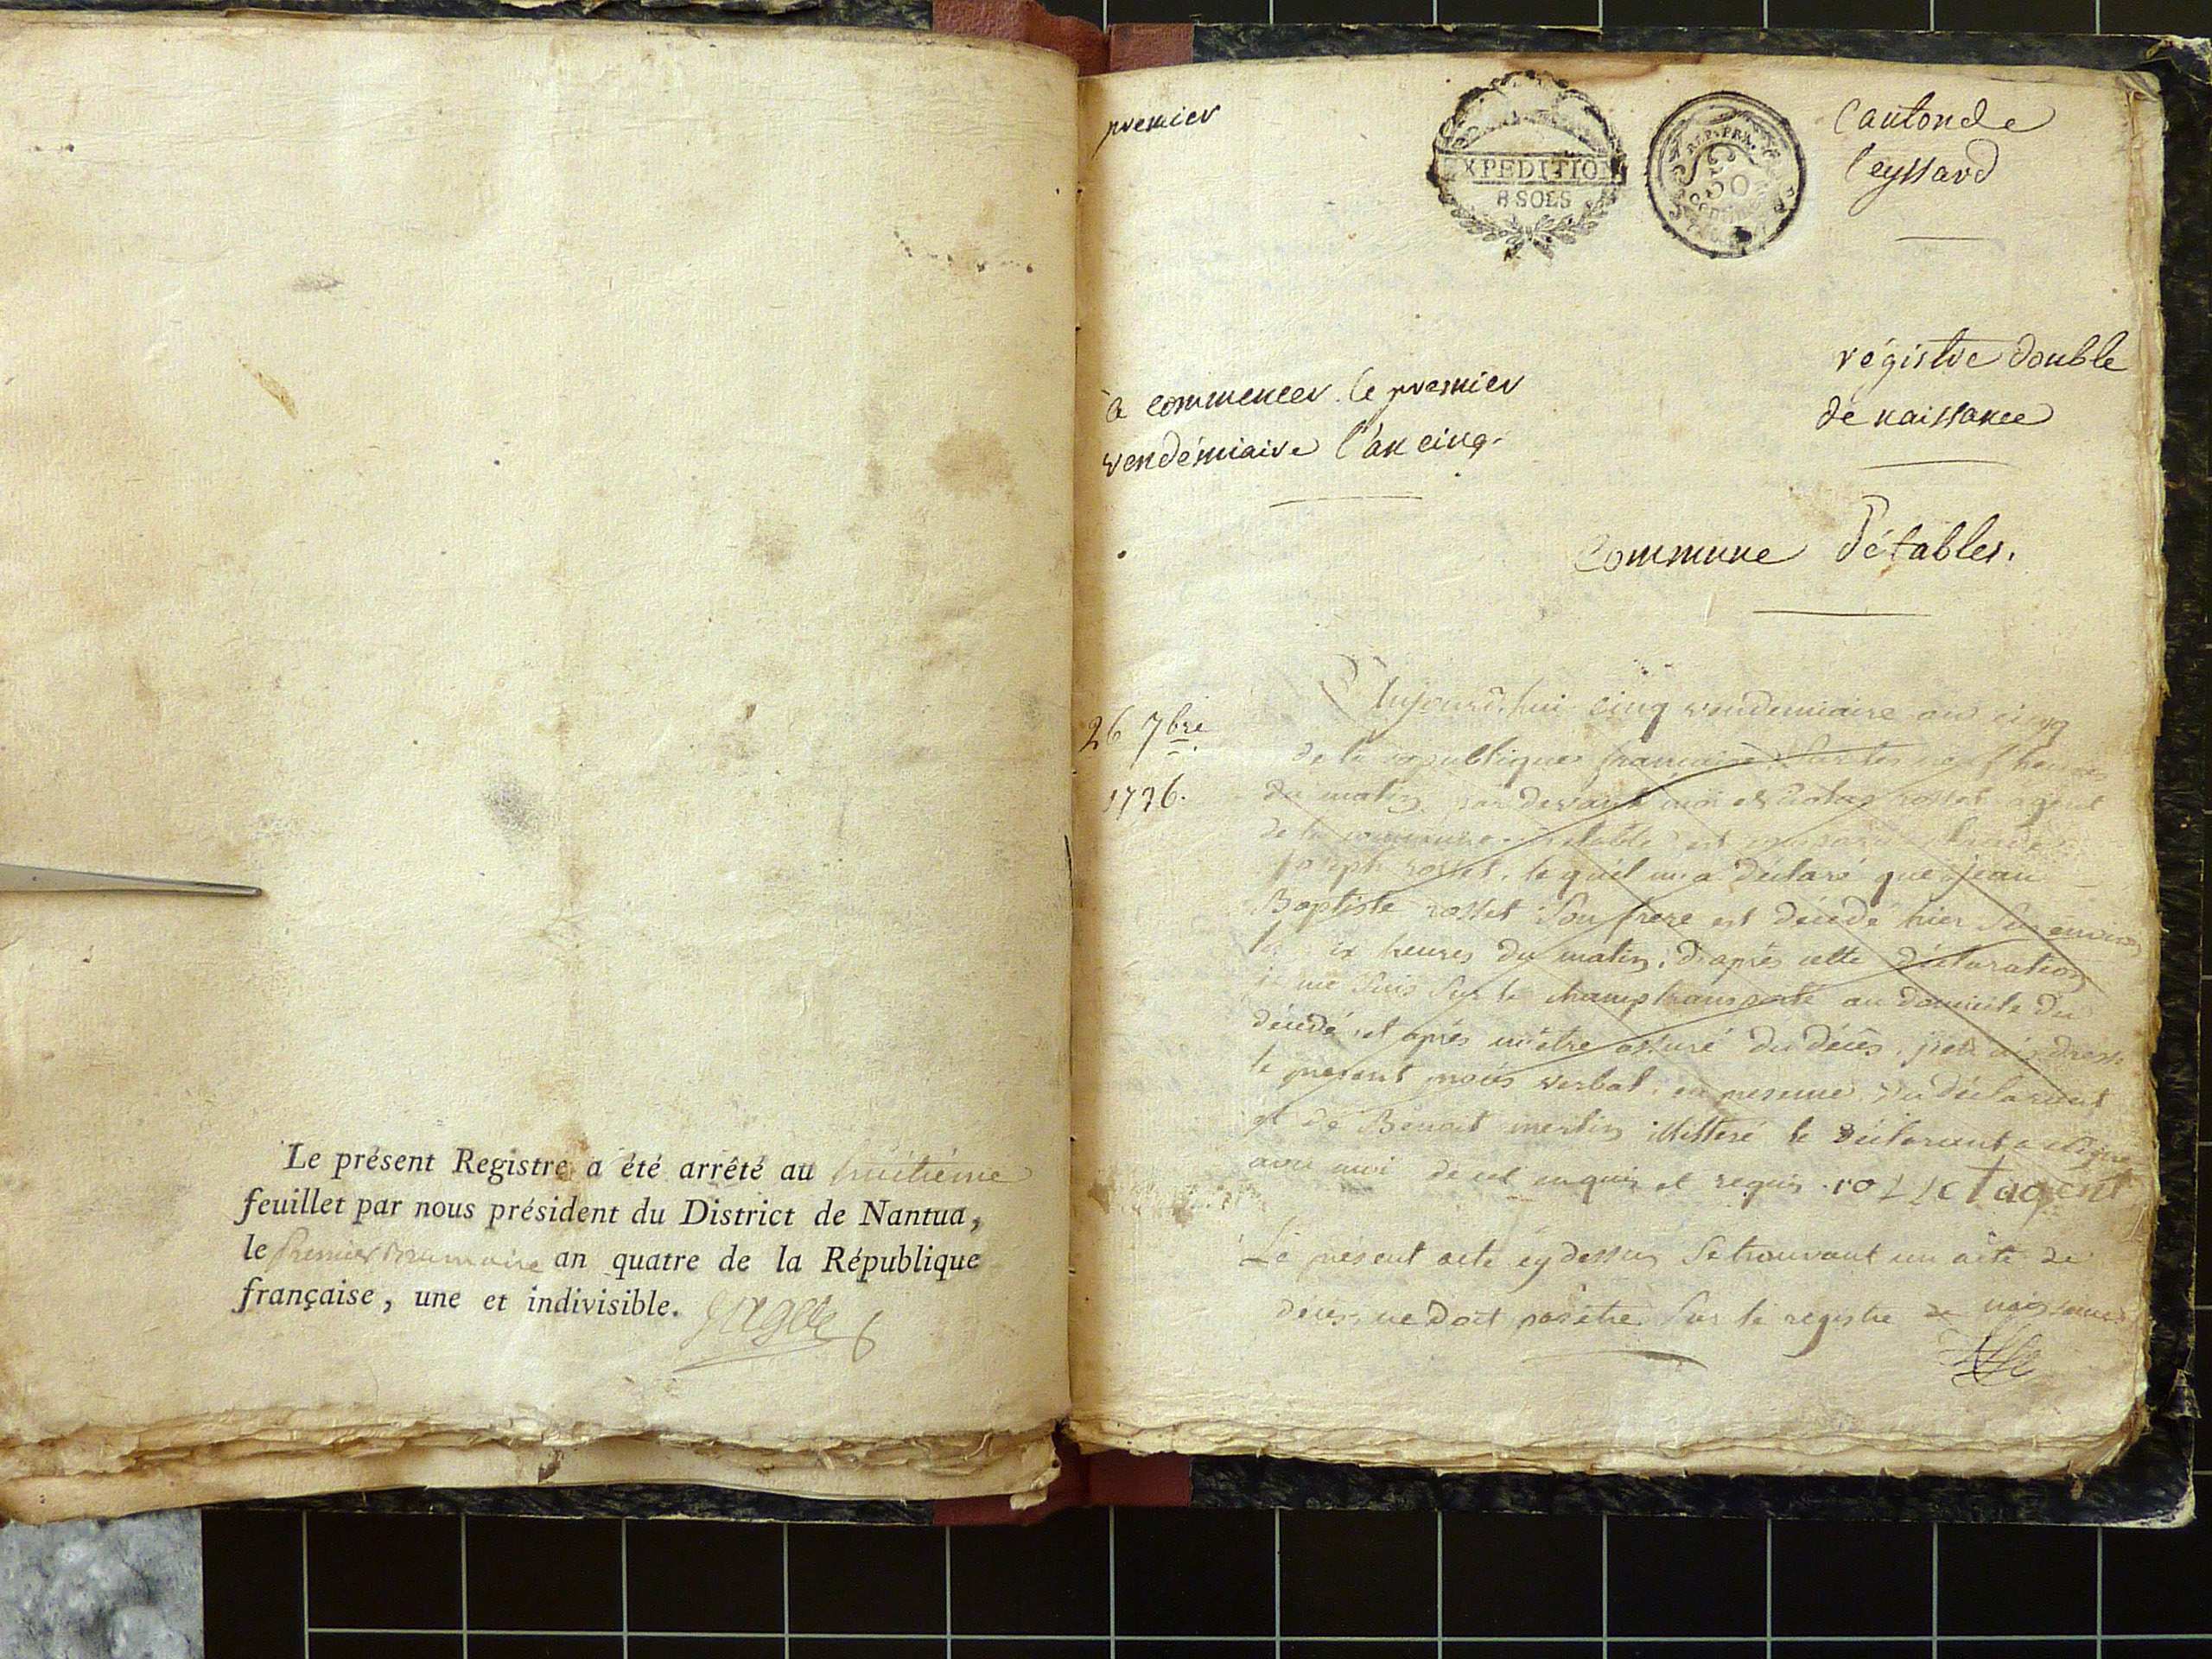 Le présent Registre a été arrêté au huitiéme
feuillet par nous président du District de Nantua,
le premier brumaire an quatre de la République
française, une et indivisible.
premier
EXPEDITION
8 SOLS
REP. FRA.
50
Centimes
Canton de
leyssard
régistre double
de naissance
à commencer le premier
vendémiaire l'an cinq.
Commune d'étables.
26 7bre
1796.
Aujourd'hui cinq vendemiaire an cinq
de la republique française sur les neuf heures
du matin, par devant moi rosset agent
de la commune est
joseph rosset, lequel m'a déclaré que jean
Baptiste rosset son frere est décédé hier sur environ
heures du matin, d'après cette déclaration
je me suis sur le champ transporté au domicile du
décédé, et après m'être assuré du décès, j'en ai dressé
le present procès verbal, en presence du déclarant
et de Benoit merlin illitteré le déclarant a signé
avec moi de cet enquis et requis. rosset agent
Le présent acte cy dessus se trouvant un acte de
deces, ne doit pas être sur le registre de naissance